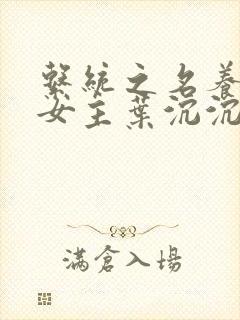 繫統之名養
女主葉沉沉
滿倉入場